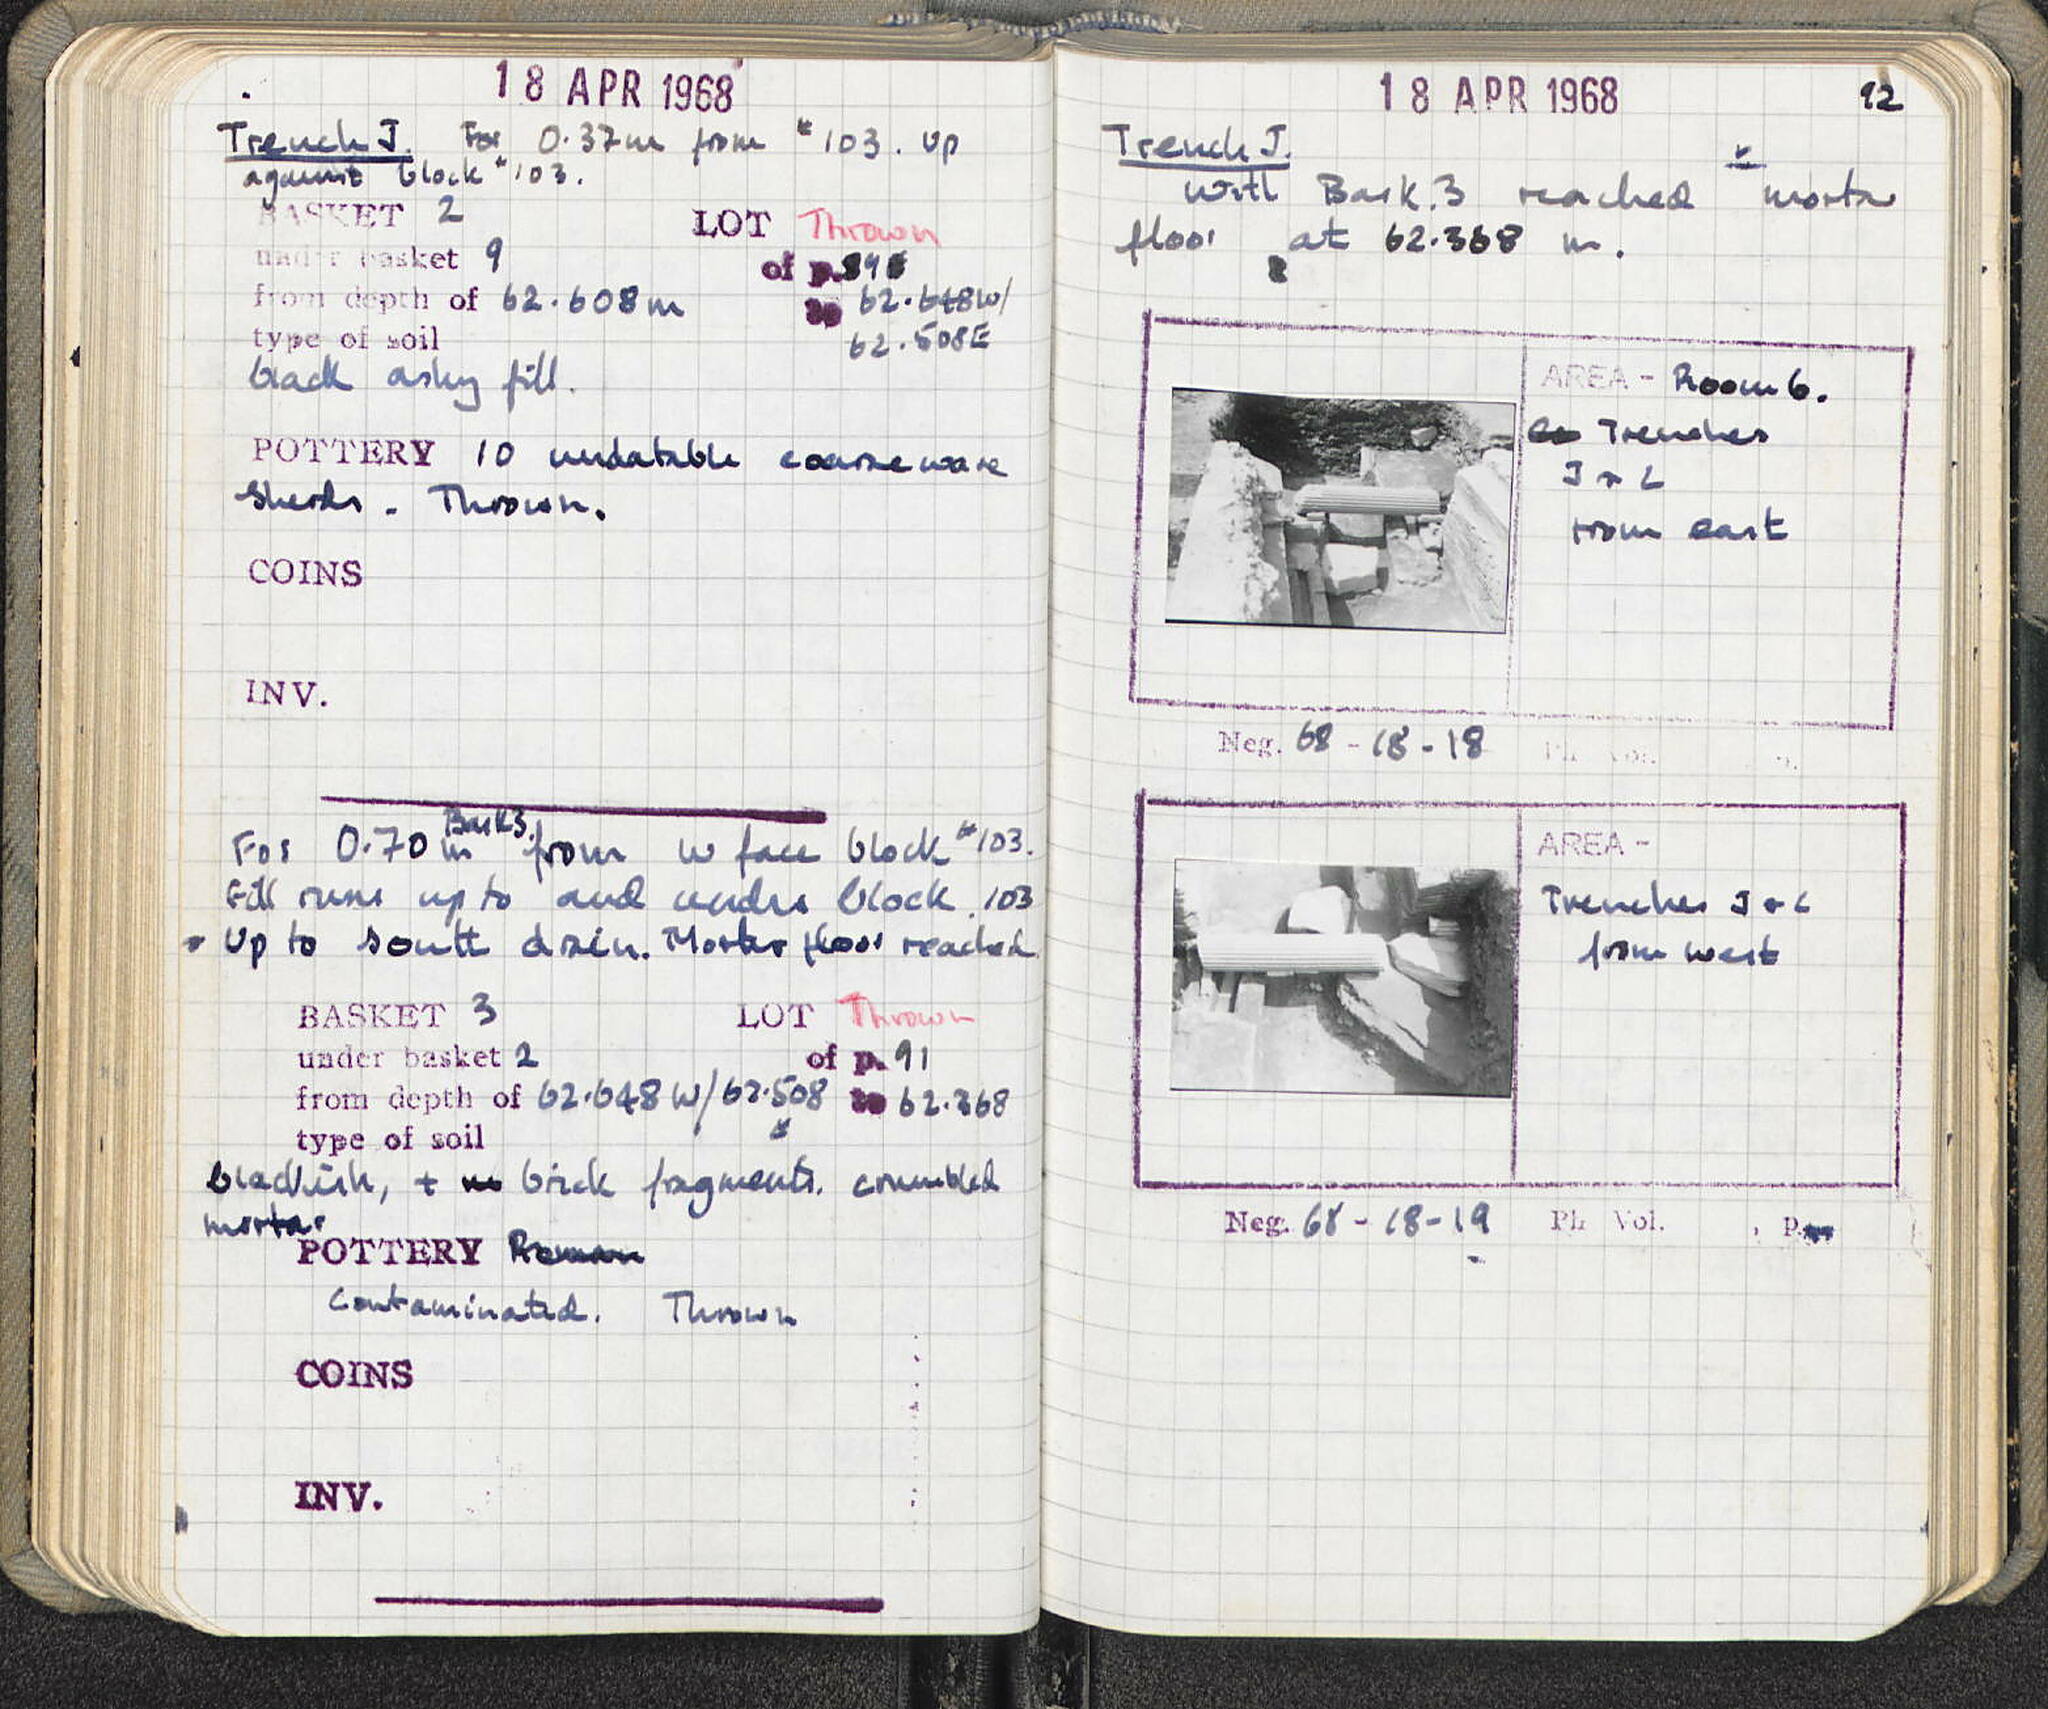 18 APR 1968
Trench J. For 0.37m from #103. Up
against block #103.
BASKET 2 LOT Thrown
under basket 9 of p.
from depth of 62.608m to 62.648W/
type of soil 62.508E
black ashy fill.
POTTERY 10 undatable coarse ware
sherds - Thrown.
COINS
INV.
Bask3.
For 0.70 m from W face block #103.
Fill runs up to and under block 103
Up to south drain. Mortar floor reached
BASKET 3 LOT Thrown
under basket 2 of p. 91
from depth of 62.648 W/62.508 to 62.368
type of soil
blackish, + brick fragments. crumbled
mortar
POTTERY Roman
Contaminated. Thrown
COINS
INV.
18 APR 1968 92
Trench J.
With Bask.3 reached mortar
floor at 62.368 m.
AREA - Room 6.
Trenches
J + L
from east
Neg. 68-18-18 Ph Vol. p.
AREA -
Trenches J + L
from west
Neg. 68-18-19 Ph Vol. , p.